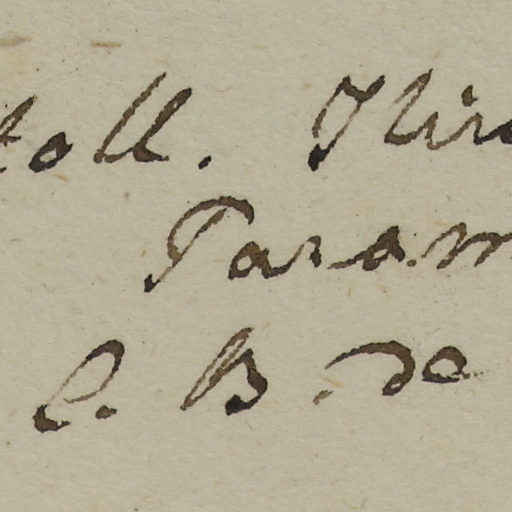 toll. Hir
Param
C. B. de